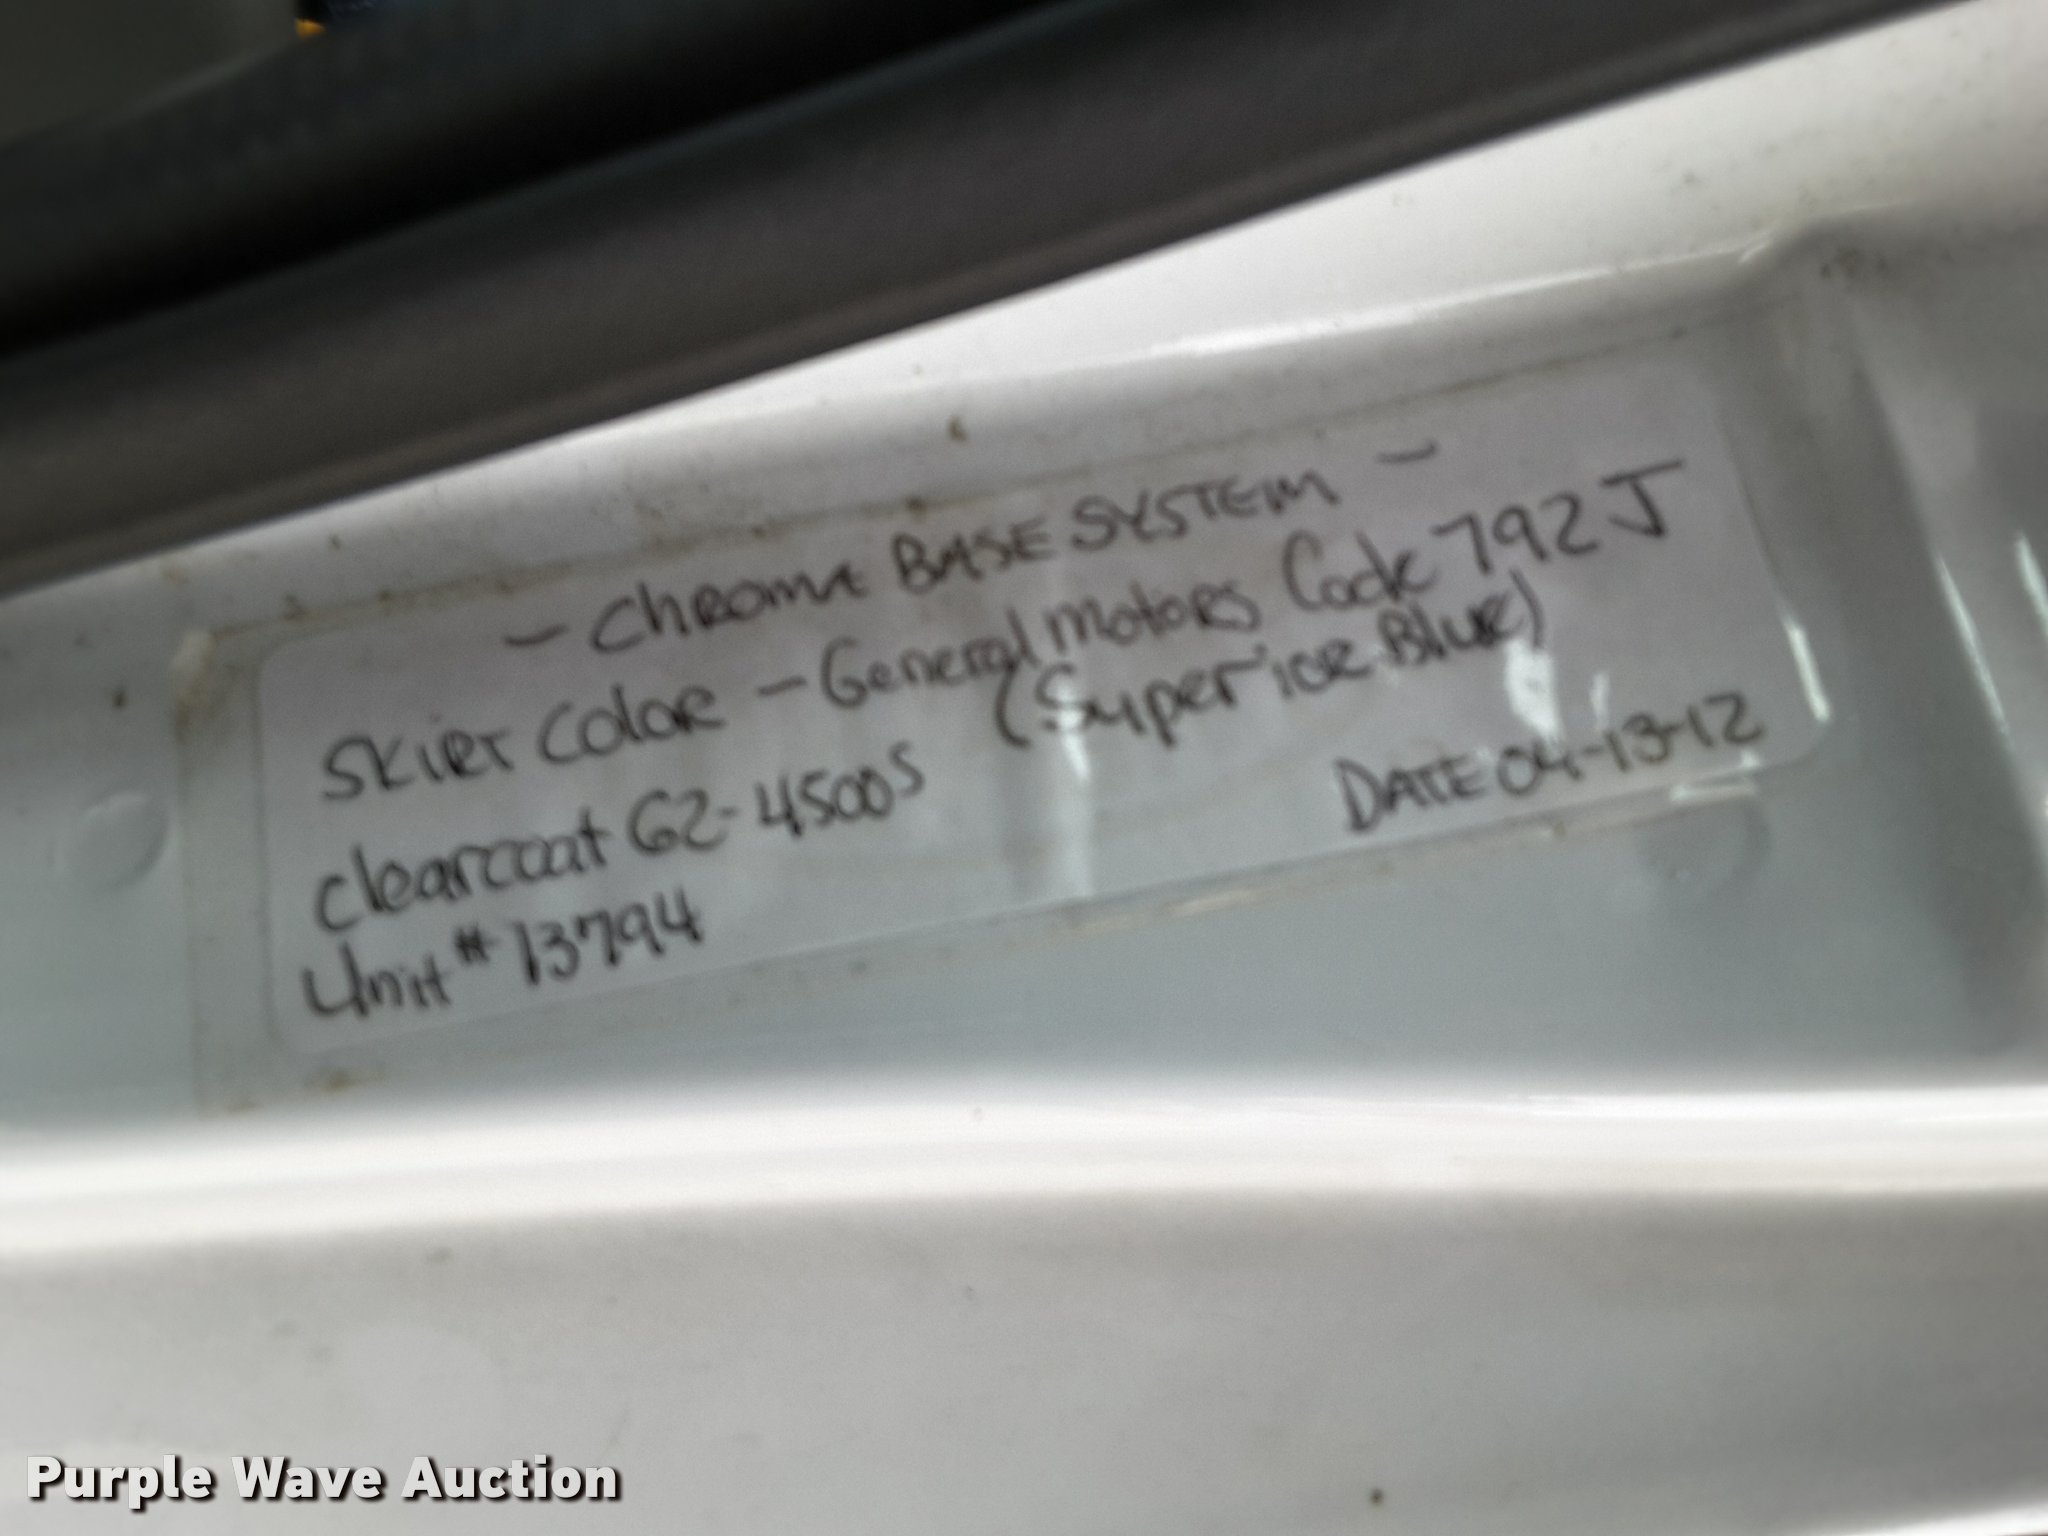 - Chroma BASE SYSTEM -
SKIRT Color - General Motors Code 792J
(Superior Blue)
clearcoat G2-4500S
DATE 04-13-12
Unit # 13794
Purple Wave Auction